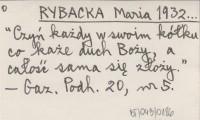 RYBACKA Maria 1932...
"Czyń każdy w swoim kółku
co każe duch Boży, a
całość sama się złoży."
— Gaz. Podh. 20, nr 5.